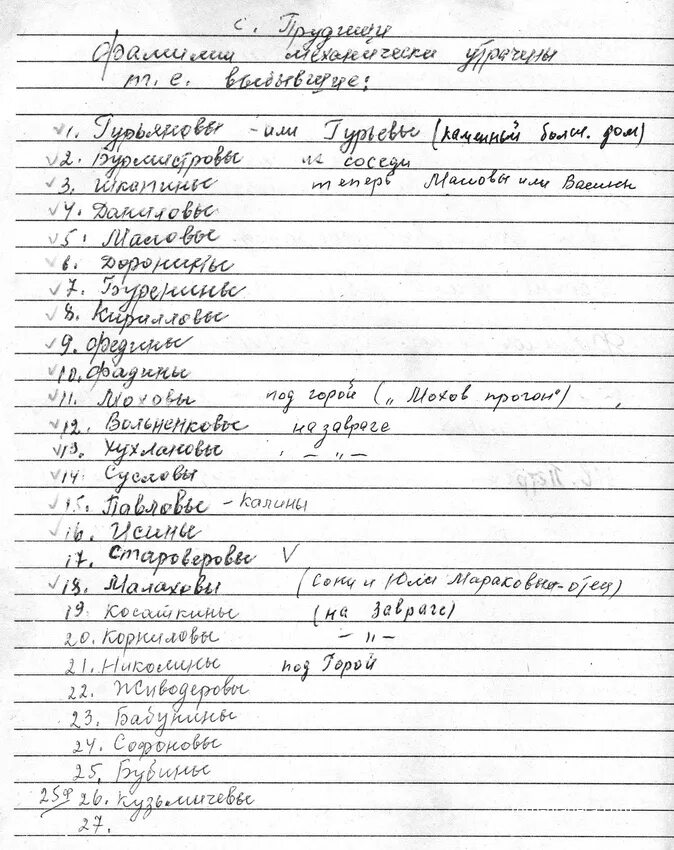 с. Прудищи
фамилии механически утрачены
т.е. выбывшие:
✓1. Гурьяновы - или Гурьевы (каменный больш. дом)
✓2. Бурмистровы их соседи
✓3. Шкапины теперь Масловы или Васины
✓4. Даниловы
✓5. Масловы
✓6. Доронины
✓7. Буренины
✓8. Кирилловы
✓9. Федины
✓10. Фадины
✓11. Моховы под горой („Мохов прогон")
✓12. Вольненковы на завраге
✓13. Хухлановы - „ -
✓14. Сусловы
✓15. Павловы - Калины
✓16. Исины
17. Староверовы V
✓18. Малаховы (Сони и Юли Мараковны - отец)
19. Косаткины (на Завраге)
20. Корниловы - „ -
21. Николины под Горой
22. Живодеровы
23. Бабунины
24. Софоновы
25. Бувины
26. Кузьмичевы
27.